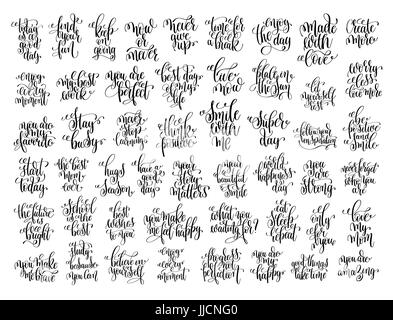 today
is a
good
day
find
your
keep
on
going
now
or
never
never
give
up
time for
a break
enjoy
the day
made
with
love
create
more
enjoy
every
moment
my best
you are
perfect
best day
of my
life
live
now
place in
the sun
let
yourself
rest
worry
less
love more
you are
my
favorite
stay
busy
never
stop
learning
think
positive
smile
with
me
super
day
follow your
inspiration
be
positive
and
smile
start
today
the best
mom
ever
hugs
season
have a
good
day
your
story
matters
your
beautiful
smile
happiness
day
you
are
strong
never forget
who you
are
the future
is
bright
school
is the
best
best
wishes
to you
you make
me
feel happy
what
you
waiting
for?
eat
sleep
repeat
only
for
you
I
love
my
mom
you make
me brave
study
because
you can
believe in
yourself
enjoy
every
moment
progress
not
perfection
you are
my
happy
good
things
take time
you are
amazing
alamy
Image ID: JJCNG0
www.alamy.com